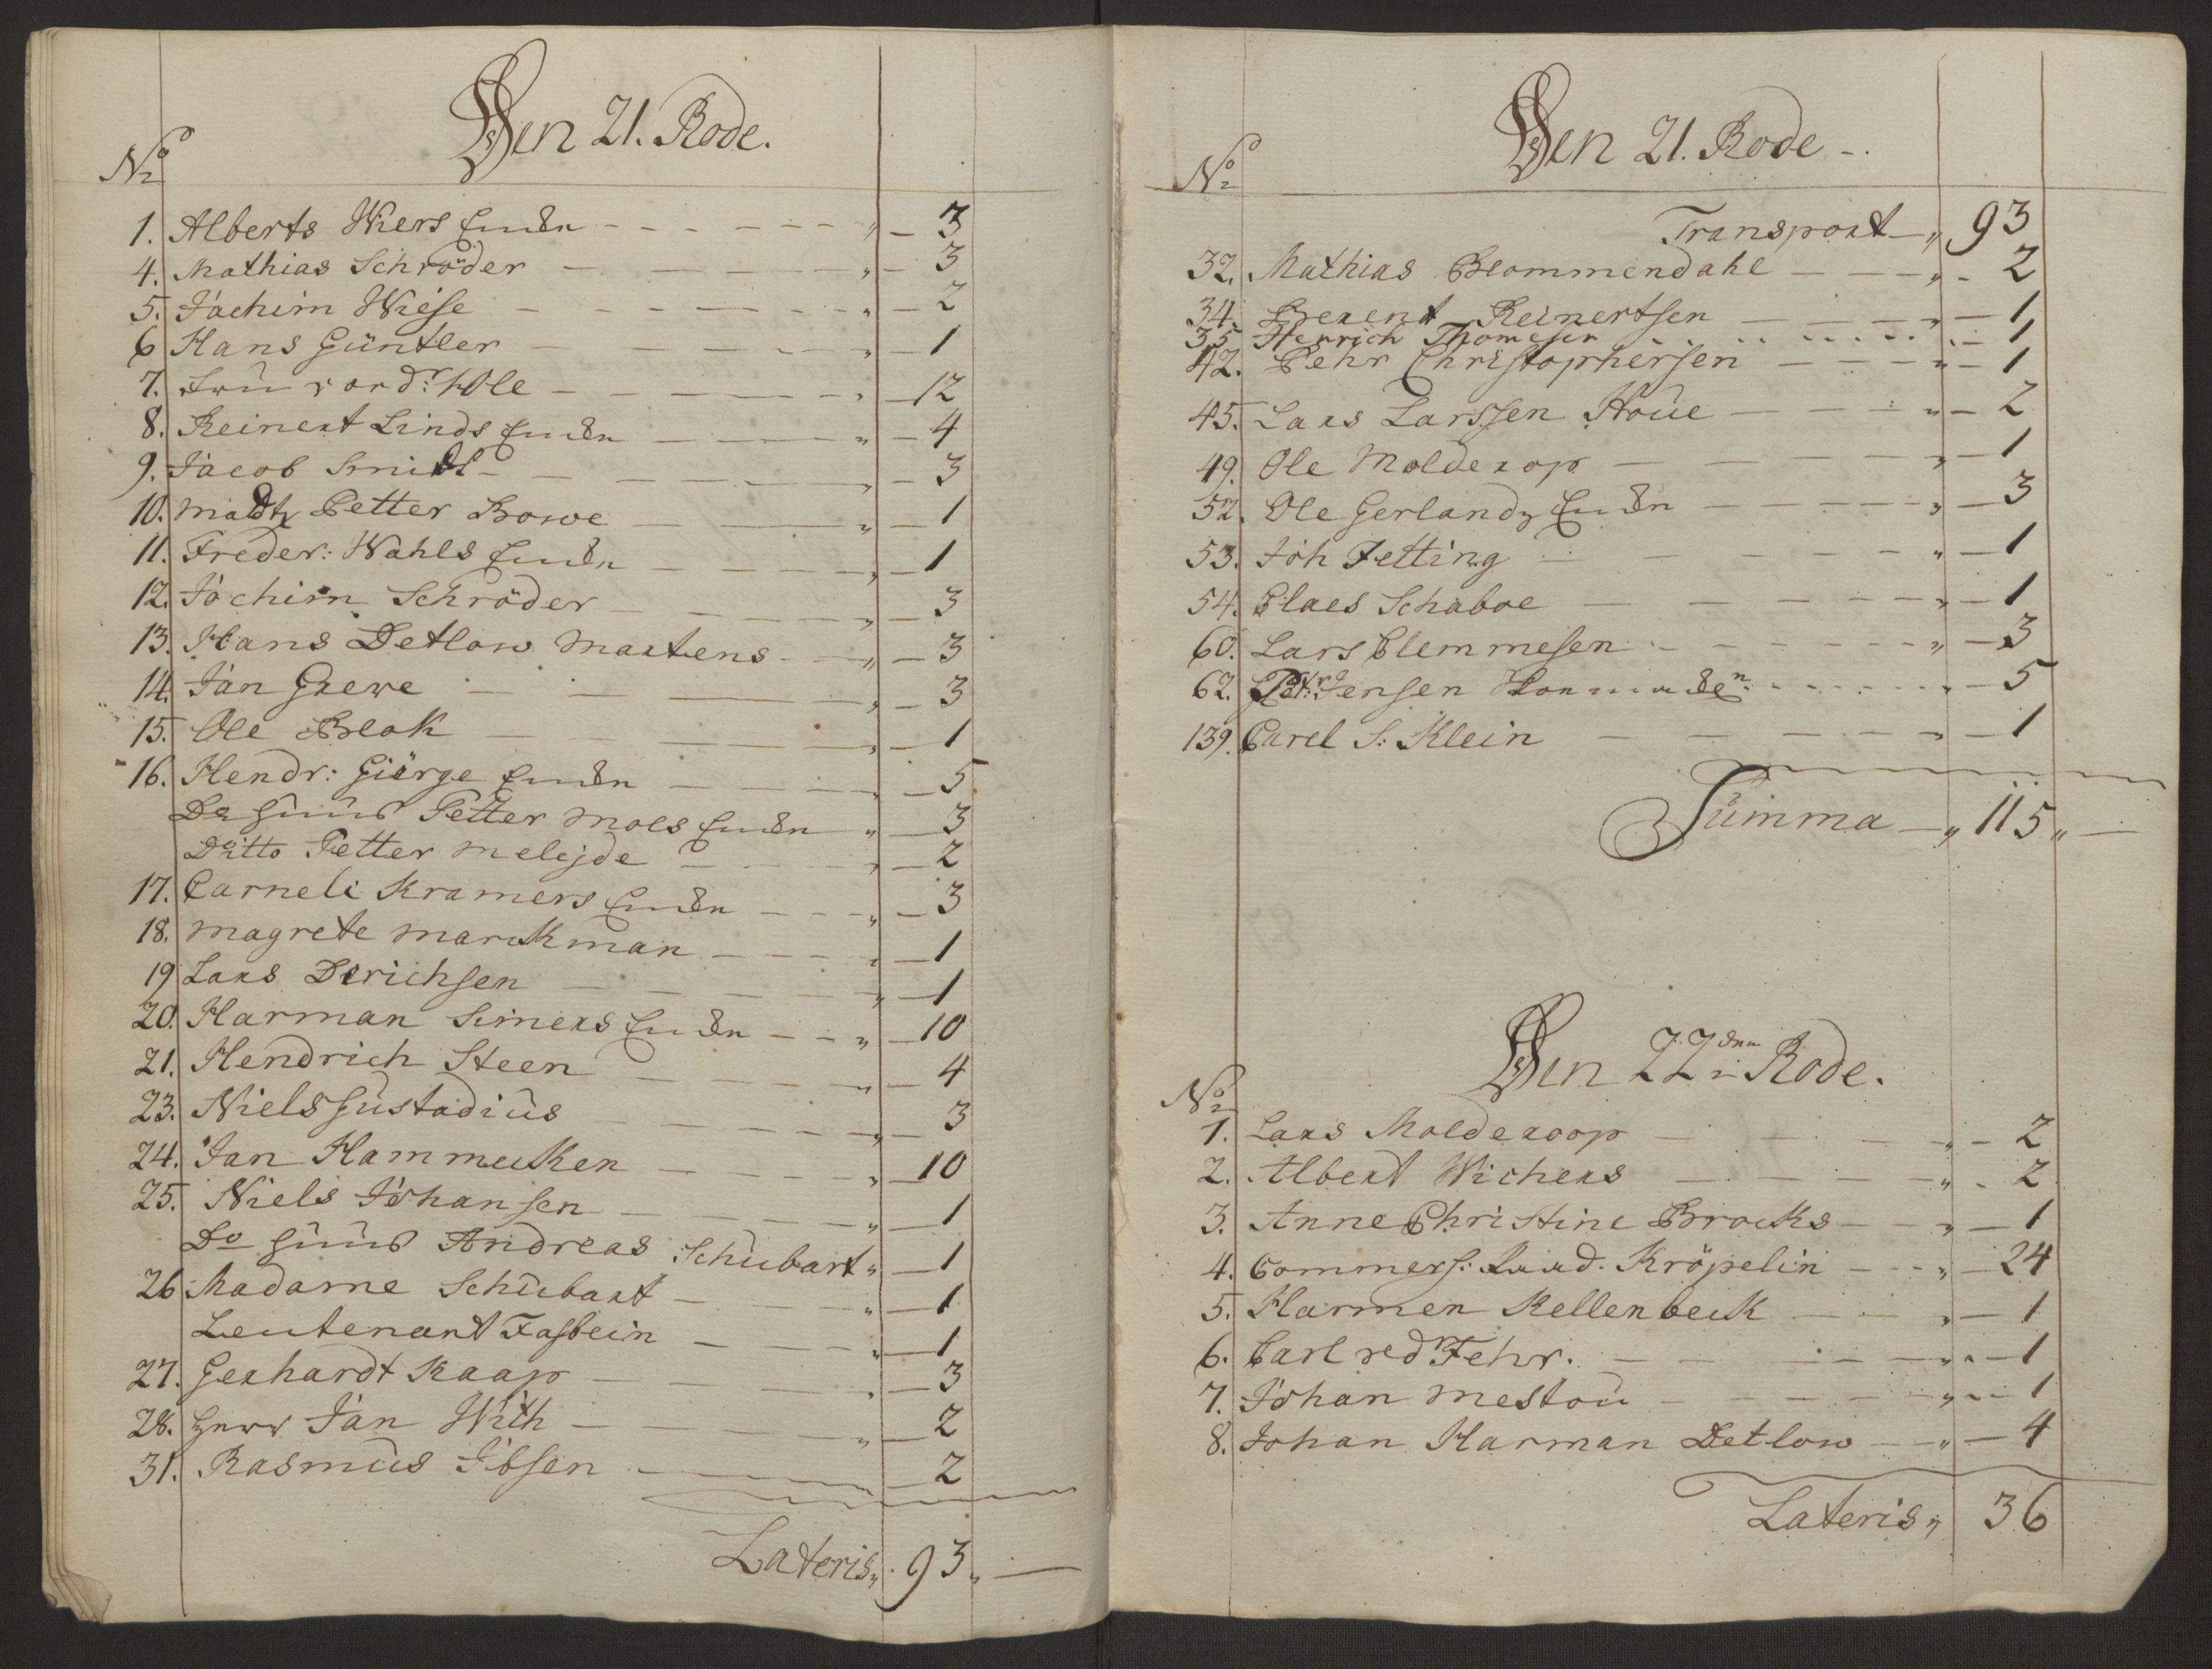 Den 21. Rode.
No
1. Alberts Wiers Encke 3
4. Mathias Schröder 3
5. Jachim Wiese 2
6 Hans Güntler 1
7. 12
8. Reinert Linds Encke 4
9. Jacob Smidt 3
10. Madtz Petter Bowe 1
11. Freder: Wahls Encke 1
12. Jochim Schröder 3
13. Hans Detlow Martens 3
14. Jan Grewe 3
15. Ole Blok 1
16. Hendr: Giörge Encke 5
Do Huus Petter Moes Encke 3
Ditto Petter Melejde 2
17. Carneli Kramers Encke 3
18. Magrete Marckman 1
19 Lars Dirichsen 1
20. Harman Simers Encke 10
21. Hendrich Steen 4
23. Niels Gustadius 3
24. Jan Hammecken 10
25. Niels Johansen 1
Do Huus Andreas Schubart 1
26 Madame Schubart 1
Leutenant Fasbein 1
27. Gerhardt Kaap 3
28. Herr Jan With 2
31. Rasmus Ibsen 2
Lateris 93

Den 21. Rode
No
Transport 93
32. Mathias Blommendahl 2
34. Berent Reinertsen 1
35 Henrich Thomesen 1
42. Pehr Christophersen 1
45. Lars Larssen Houe 2
49. Ole Molderop 1
52. Ole Gerlandz Encke 3
53. Joh Fetting 1
54. Claes Schaboe 1
60. Lars Clemmesen 3
62. Jensen 5
139. Carel S: Klein 1
Summa 115

Den 22 Rode.
No
1. Lars Molderoop 2
2. Albert Wichers 2
3. Anne Christine Brocks 1
4. Commers: Raad. Kröpelin 24
5. Harmen Kellenbeck 1
6. Carl red Fehr. 1
7. Johan Mestou 1
8. Johan Harman Detlow 4
Lateris 36